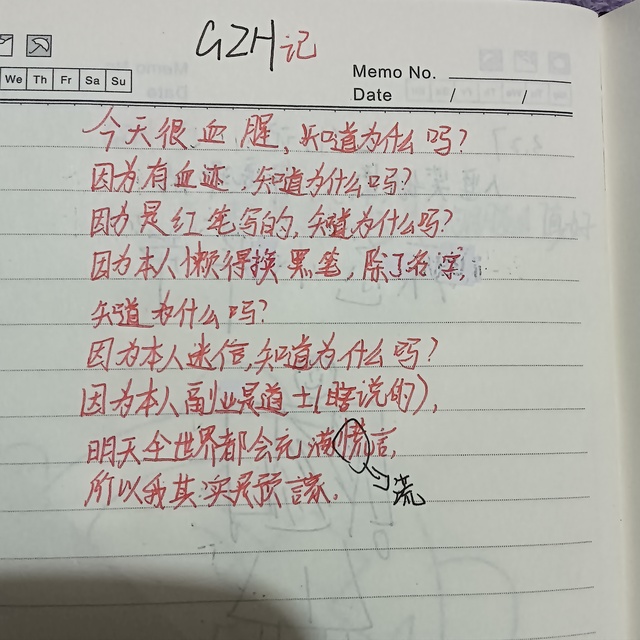 GZH记
We Th Fr Sa Su
Memo No.
Date / /
今天很血腥,知道为什么吗?
因为有血迹,知道为什么吗?
因为是红笔写的,知道为什么吗?
因为本人懒得换黑笔,除了名字,
知道为什么吗?
因为本人迷信,知道为什么吗?
因为本人副业是道士(瞎说的),
明天全世界都会充满慌言,
谎
所以我其实是预言家.